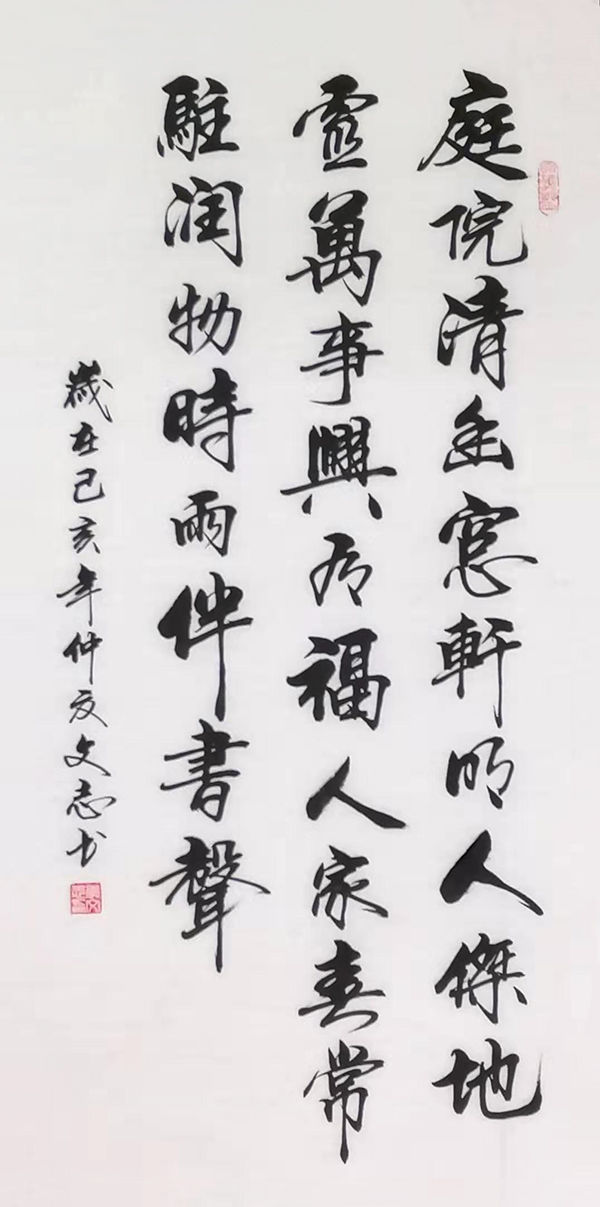 庭院清幽窓軒明人傑地
霊萬事興有福人家春常
駐润物時雨伴書聲
歲在己亥年仲夏文志书